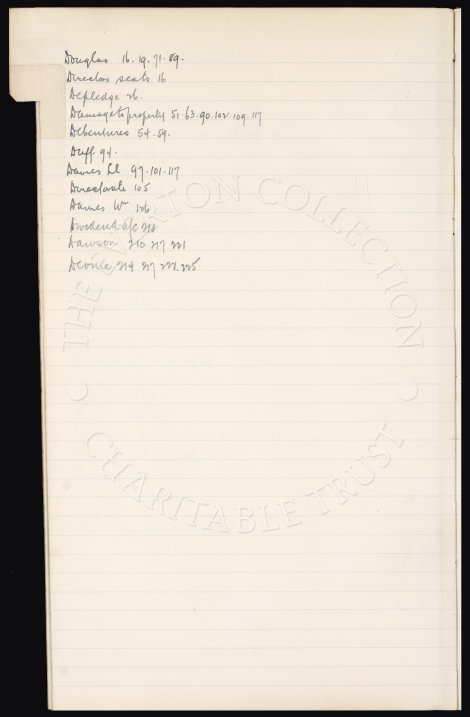 Douglas 16. 19. 71. 89.
Directors seats 16
Depledge 26.
Damage to property 51. 63. 90. 102. 109. 117
Debentures 54. 59.
Duff 94.
Davies Ll 97. 101. 117
Directorate 105
Davies Wm 126
Dividend a/c 218
Dawson 210 217 221
217 221. 225
THE EVERTON COLLECTION
CHARITABLE TRUST